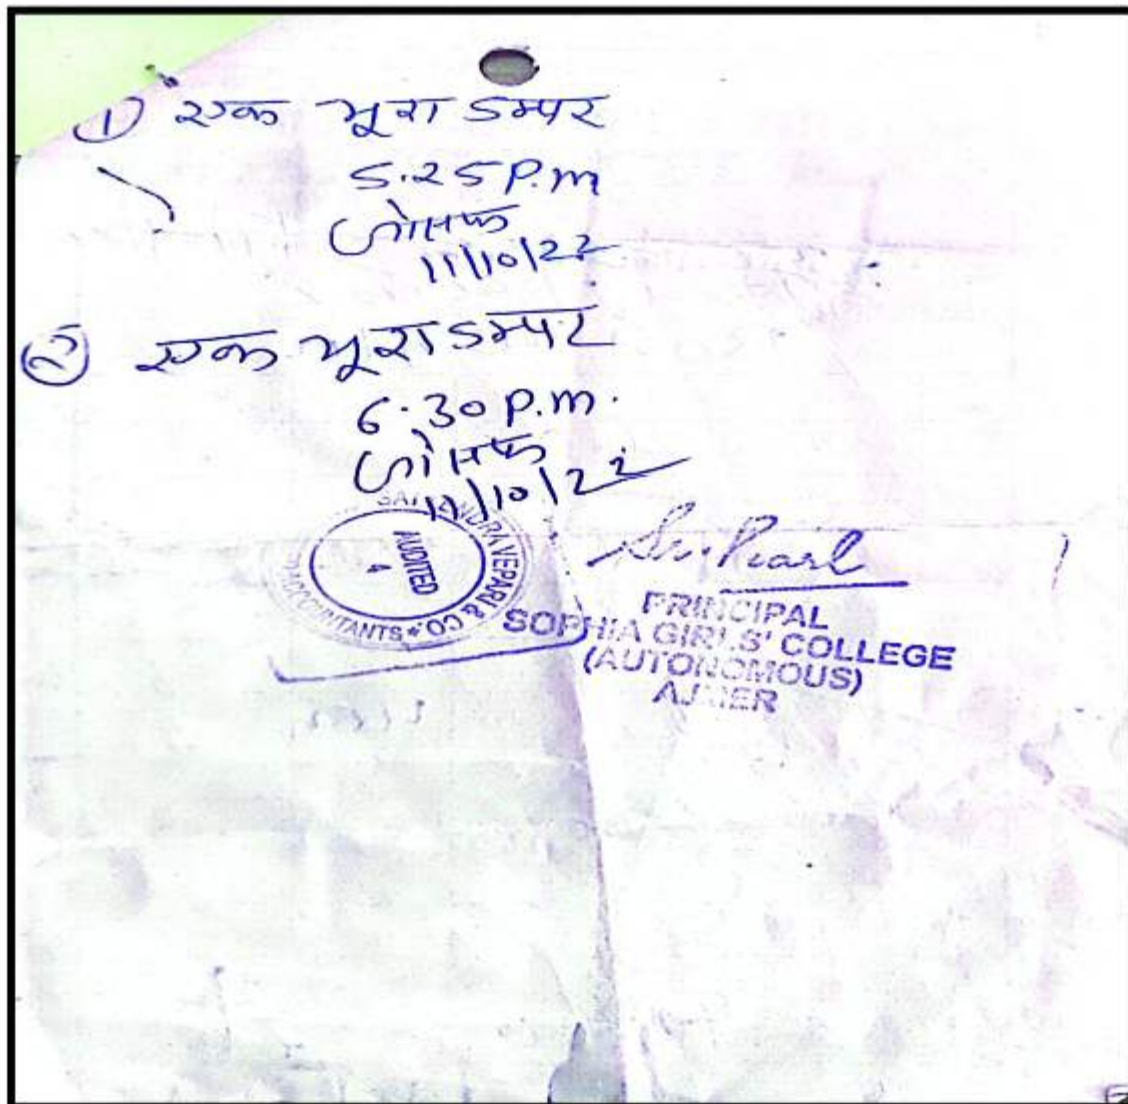 ① एक भूरा डम्पर
5.25 P.m
जोसफ
11/10/22
② एक भूरा डम्पर
6.30 p.m.
जोसफ
11/10/22
AUDITED
VEPARI & CO.
Sr. Pearl
PRINCIPAL
SOPHIA GIRLS' COLLEGE
(AUTONOMOUS)
AJMER